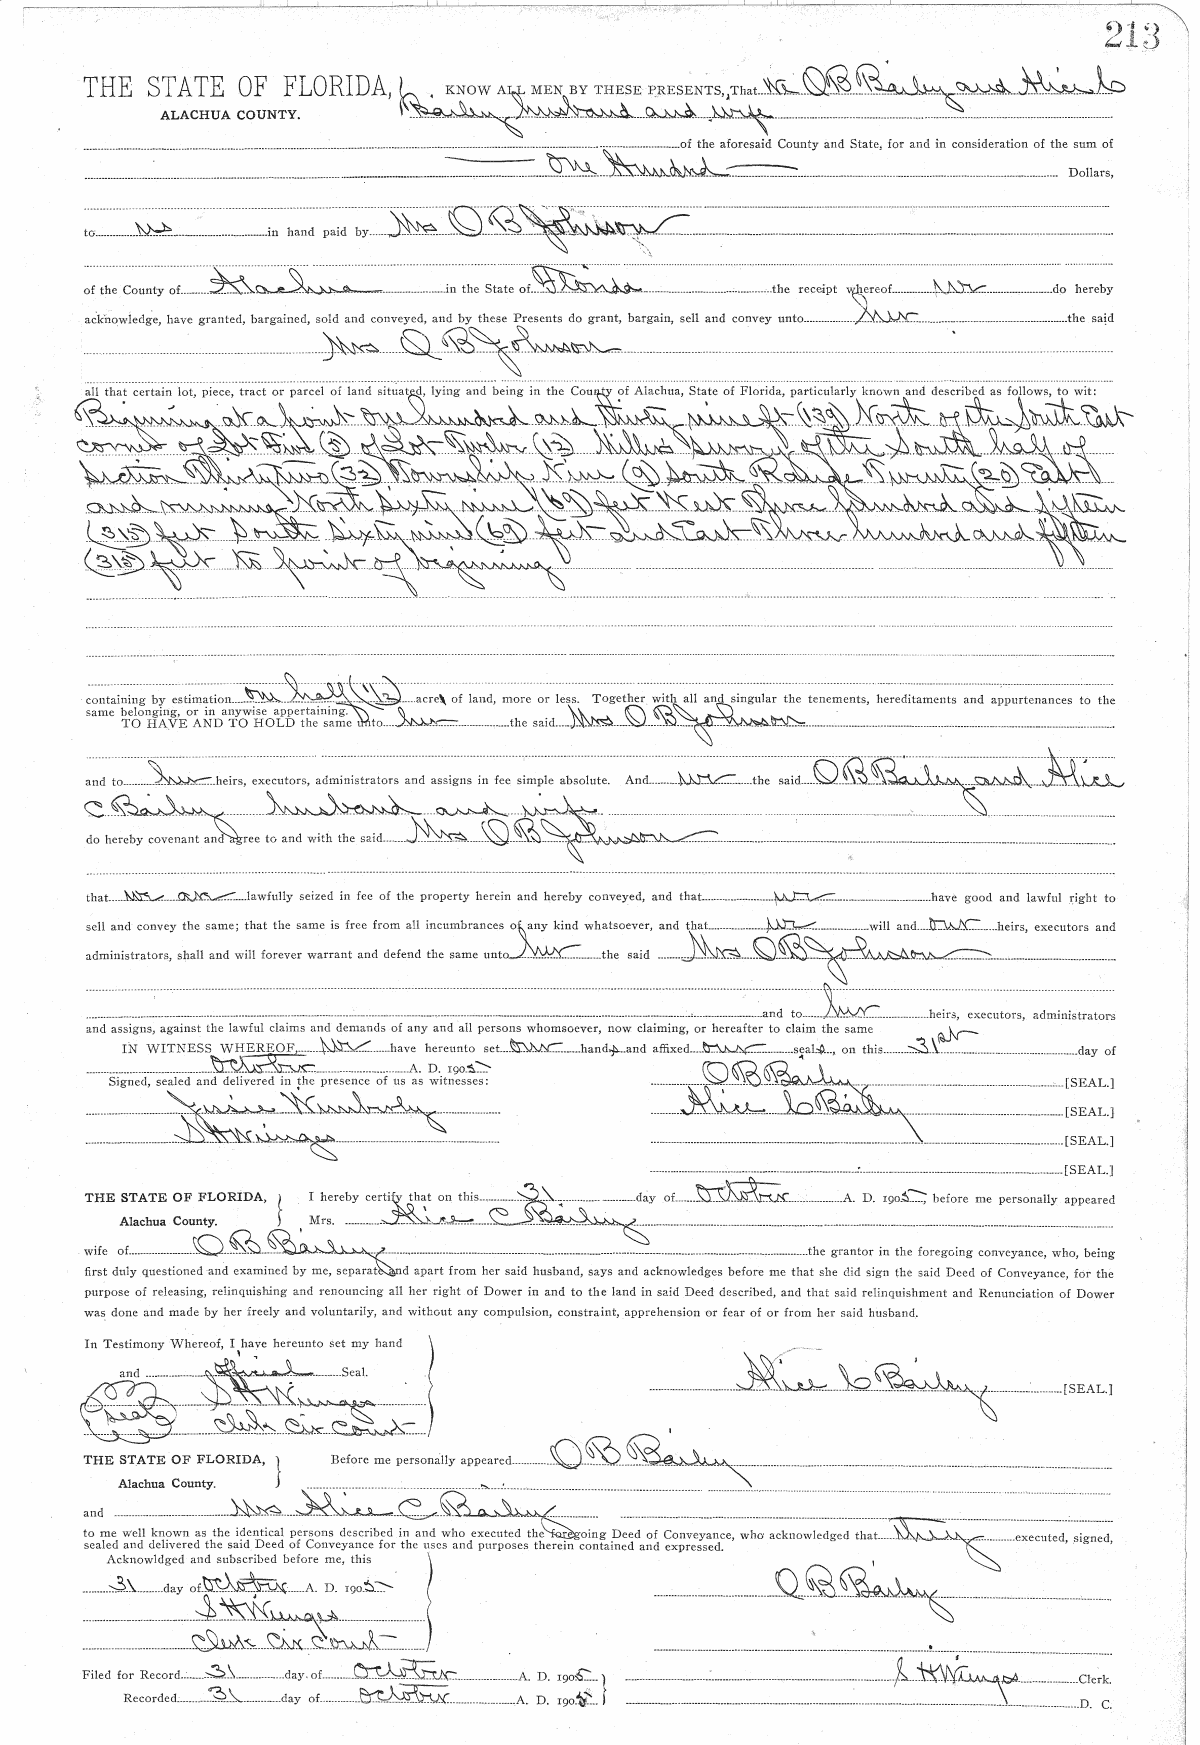 213
THE STATE OF FLORIDA, KNOW ALL MEN BY THESE PRESENTS, That We O B Bailey and Alice C
ALACHUA COUNTY. Bailey husband and wife
of the aforesaid County and State, for and in consideration of the sum of
One Hundred Dollars,
to us in hand paid by Mrs O B Johnson
of the County of Alachua in the State of Florida the receipt whereof we do hereby
acknowledge, have granted, bargained, sold and conveyed, and by these Presents do grant, bargain, sell and convey unto her the said
Mrs O B Johnson
all that certain lot, piece, tract or parcel of land situated, lying and being in the County of Alachua, State of Florida, particularly known and described as follows, to wit:
Biginning at a point one hundred and thirty nine ft (139) North of the South East
corner of Lot Five (5) of Lot Twelve (12) Millers survey of the South half of
Section Thirty two (32) Township Nine (9) South Range Twenty (20) East
and running North Sixty nine (69) feet West Three hundred and fifteen
(315) feet South Sixty nine (69) feet and East Three hundred and fifteen
(315) feet to point of beginning
containing by estimation one half (1/2) acre of land, more or less. Together with all and singular the tenements, hereditaments and appurtenances to the
same belonging, or in anywise appertaining.
TO HAVE AND TO HOLD the same unto her the said Mrs O B Johnson
and to her heirs, executors, administrators and assigns in fee simple absolute. And we the said O B Bailey and Alice
C Bailey husband and wife
do hereby covenant and agree to and with the said Mrs O B Johnson
that we are lawfully seized in fee of the property herein and hereby conveyed, and that we have good and lawful right to
sell and convey the same; that the same is free from all incumbrances of any kind whatsoever, and that we will and our heirs, executors and
administrators, shall and will forever warrant and defend the same unto her the said Mrs O B Johnson
and to her heirs, executors, administrators
and assigns, against the lawful claims and demands of any and all persons whomsoever, now claiming, or hereafter to claim the same
IN WITNESS WHEREOF, We have hereunto set our hands and affixed our seals, on this 31st day of
October A. D. 1905
Signed, sealed and delivered in the presence of us as witnesses: O B Bailey [SEAL.]
Jessie Wimberly Alice C Bailey [SEAL.]
S H Wienges [SEAL.]
[SEAL.]
THE STATE OF FLORIDA, I hereby certify that on this 31 day of October A. D. 1905, before me personally appeared
Alachua County. Mrs. Alice C Bailey
wife of O B Bailey the grantor in the foregoing conveyance, who, being
first duly questioned and examined by me, separate and apart from her said husband, says and acknowledges before me that she did sign the said Deed of Conveyance, for the
purpose of releasing, relinquishing and renouncing all her right of Dower in and to the land in said Deed described, and that said relinquishment and Renunciation of Dower
was done and made by her freely and voluntarily, and without any compulsion, constraint, apprehension or fear of or from her said husband.
In Testimony Whereof, I have hereunto set my hand
and official Seal. Alice C Bailey [SEAL.]
seal S H Wienges
Clerk Cir Court
THE STATE OF FLORIDA, Before me personally appeared O B Bailey
Alachua County.
and Mrs Alice C Bailey
to me well known as the identical persons described in and who executed the foregoing Deed of Conveyance, who acknowledged that they executed, signed,
sealed and delivered the said Deed of Conveyance for the uses and purposes therein contained and expressed.
Acknowldged and subscribed before me, this
31 day of October A. D. 1905 O B Bailey
S H Wienges
Clerk Cir Court
Filed for Record 31 day of October A. D. 1905 S H Wienges Clerk.
Recorded 31 day of October A. D. 1905 D. C.